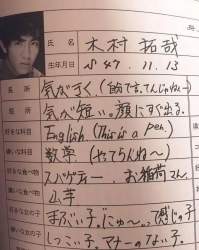 氏名 木村拓哉
生年月日 S47.11.13
長所 気がきく。(自分で言う、てんじゃねー)
短所 気が短い。顔にすぐ出る。
好きな科目 English (This is a pen.)
嫌いな科目 数学 (やってらんねー)
好きな食べ物 スパゲティー、お稲荷さん。
嫌いな食べ物 山芋
好きな女の子 まぶい子。にゅ〜。って感じの子
嫌いな女の子 しつこい子。マナーのない子。